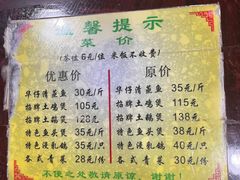 温馨提示
菜价
(茶位6元/位 米饭不收费)
优惠价 原价
华仔清蒸鱼 30元/斤 华仔清蒸鱼 35元/斤
招牌土鸡煲 105元 招牌土鸡煲 115元
招牌土鹅煲 128元 招牌土鹅煲 138元
特色鱼头煲 38元/斤 特色鱼头煲 40元/斤
特色乳鸽 35元/只 特色乳鸽 40元/只
各式青菜 28元/份 各式青菜 30元/份
不便之处敬请原谅 谢谢!